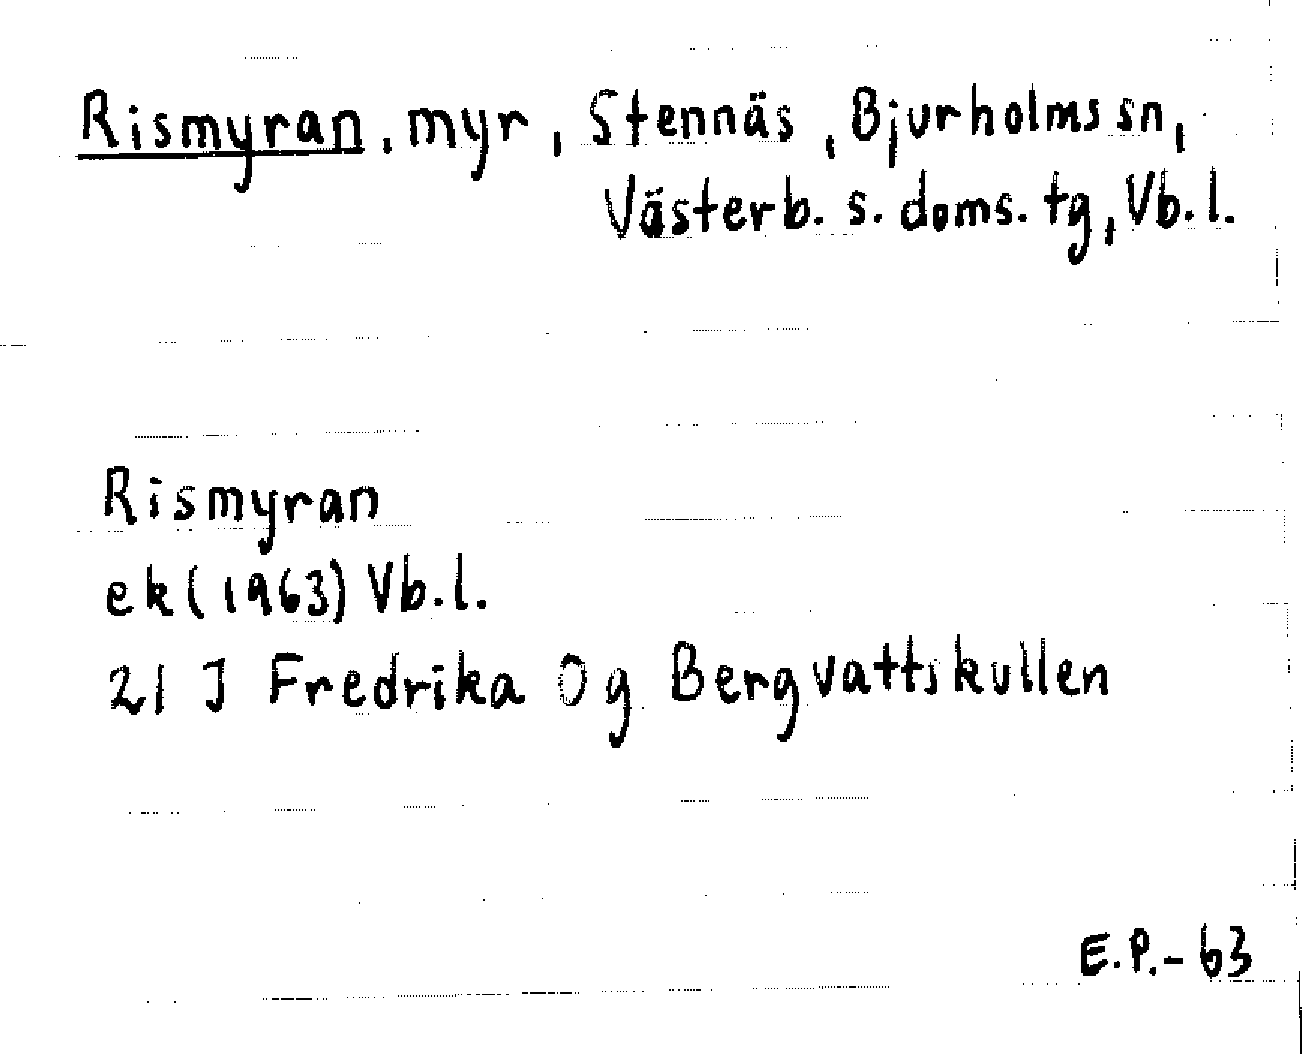 Rismyran, myr, Stennäs, Bjurholms sn,
Västerb. s. doms. tg, Vb. l.
Rismyran
ek (1963) Vb. l.
21 J Fredrika 0 g Bergvattskullen
E.P.-63